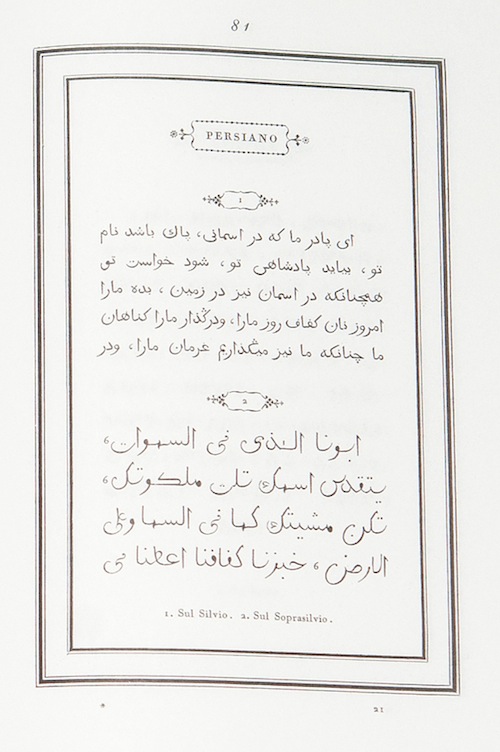 81
PERSIANO
1
ای پادر ما که در اسمانی، پاك باشد نام
تو، بیاید پادشاهی تو، شود خواست تو
همچنانکه در اسمان نیز در زمین، بده مارا
امروز نان کفاف روز مارا، ودرگذار مارا کناهان
ما چنانکه ما نیز میگذاریم عرمان مارا، ودر
2
ابونا الذى فى السموات،
يتقدس اسمك تات ملكوتك،
تكن مشيتك كما فى السما وعلى
الارض، خبزنا كفافنا اعطنا فى
1. Sul Silvio. 2. Sul Soprasilvio.
* 21